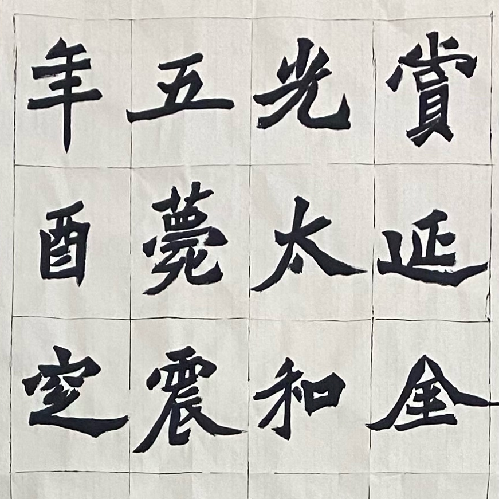 賞延金
光太和
五薨震
年酉窆